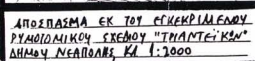 ΑΠΟΣΠΑΣΜΑ ΕΚ ΤΟΥ ΕΓΚΕΚΡΙΜΕΝΟΥ
ΡΥΜΟΤΟΜΙΚΟΥ ΣΧΕΔΙΟΥ "ΤΡΙΑΝΤΕΪΚΩΝ"
ΔΗΜΟΥ ΝΕΑΠΟΛΗΣ, ΚΛ 1:2000